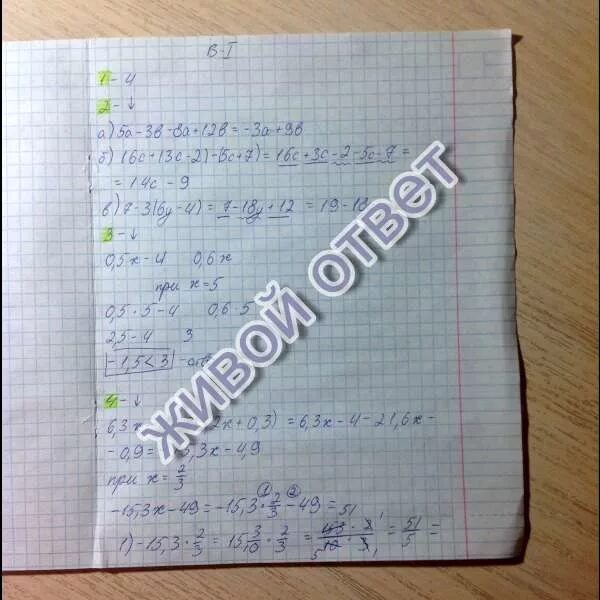 В-I
1 - 4
2 - ↓
а) 5а - 3в - 8а + 12в = -3а + 9в
б) 16с + (3с - 2) - (5с + 7) = 16с + 3с - 2 - 5с - 7 =
= 14с - 9
в) 7 - 3(6у - 4) = 7 - 18у + 12 = 19 - 18
3 - ↓
0,5х - 4 0,6х
при х = 5
0,5 · 5 - 4 0,6 · 5
2,5 - 4 3
-1,5 < 3
4 - ↓
6,3х 2х + 0,3) = 6,3х - 4 - 21,6х -
- 0,9 = 5,3х - 4,9
при х = 2/3
-15,3х - 49 = -15,3 · 2/3 - 49 =
1) -15,3 · 2/3 = 15 3/10 · 2/3 = 153 · 2 / 10 · 3 = 51/5 =
ЖИВОЙ ОТВЕТ